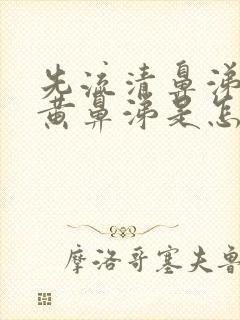 先流清鼻涕
黄鼻涕是怎
摩洛哥塞夫鲁